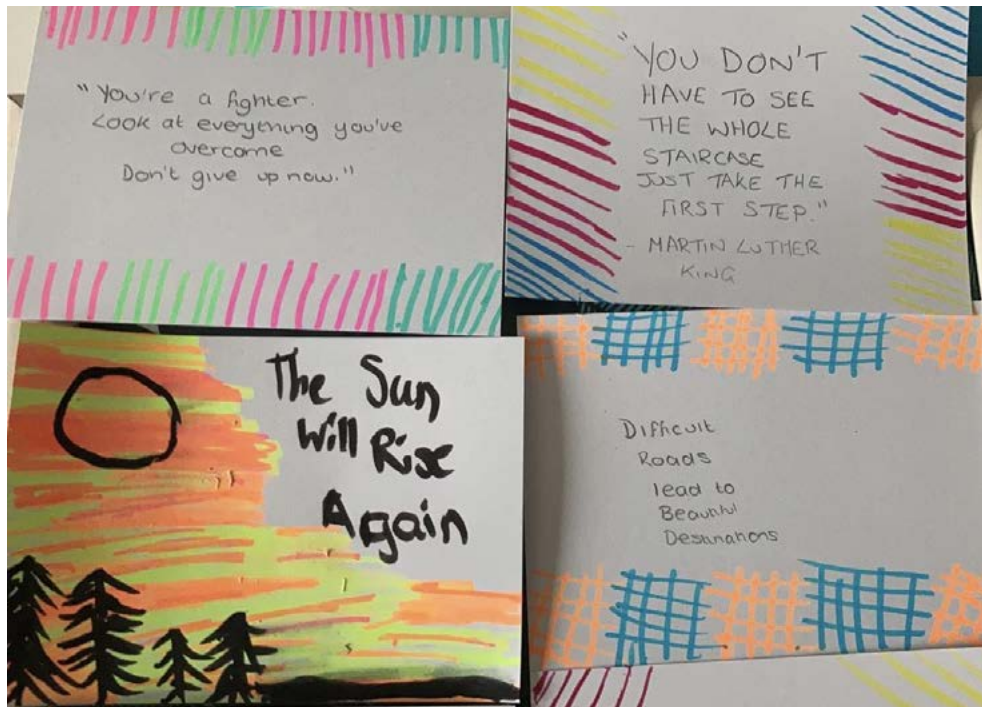 "You're a fighter.
Look at everything you've
overcome
Don't give up now."
"YOU DON'T
HAVE TO SEE
THE WHOLE
STAIRCASE
JUST TAKE THE
FIRST STEP."
- MARTIN LUTHER
KING
The Sun
Will Rise
Again
Difficult
Roads
lead to
Beautiful
Destinations